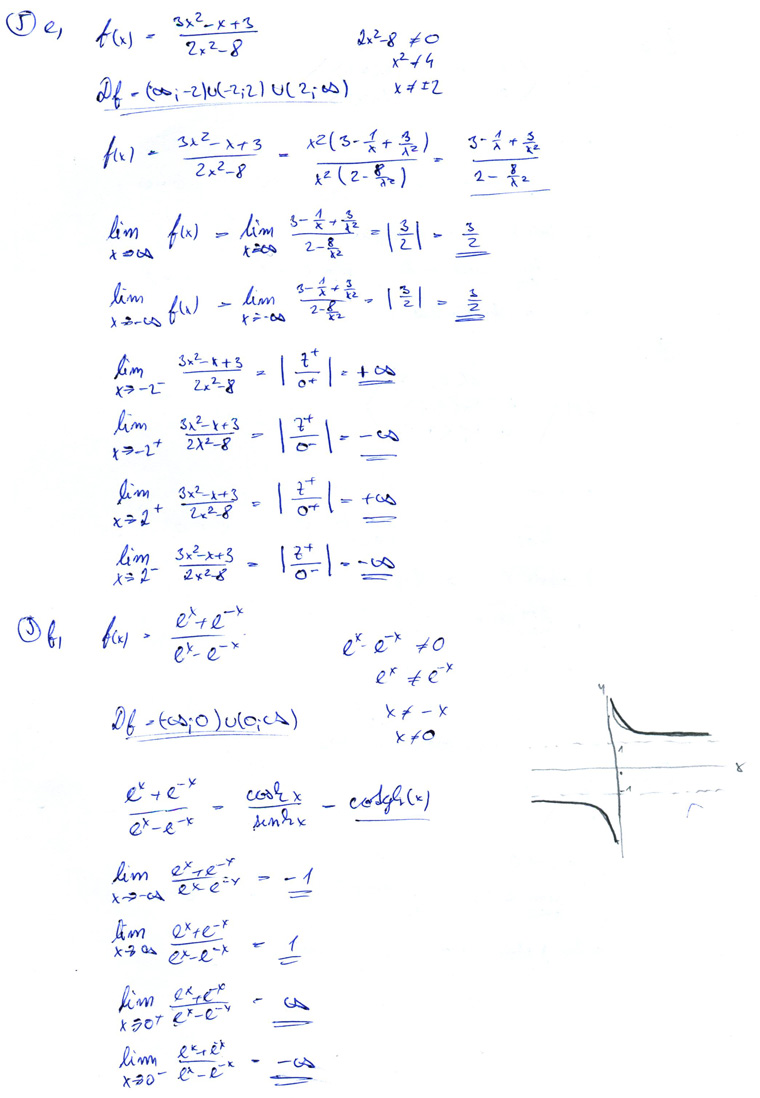 5 e, f(x) = (3x²-x+3)/(2x²-8) 2x²-8 ≠ 0
x² ≠ 4
Df = (∞;-2)∪(-2;2)∪(2;∞) x ≠ ±2
f(x) = (3x²-x+3)/(2x²-8) = x²(3-1/x+3/x²)/x²(2-8/x²) = (3-1/x+3/x²)/(2-8/x²)
lim x→∞ f(x) = lim x→∞ (3-1/x+3/x²)/(2-8/x²) = |3/2| = 3/2
lim x→-∞ f(x) = lim x→-∞ (3-1/x+3/x²)/(2-8/x²) = |3/2| = 3/2
lim x→-2⁻ (3x²-x+3)/(2x²-8) = |Z⁺/0⁺| = +∞
lim x→-2⁺ (3x²-x+3)/(2x²-8) = |Z⁺/0⁻| = -∞
lim x→2⁺ (3x²-x+3)/(2x²-8) = |Z⁺/0⁺| = +∞
lim x→2⁻ (3x²-x+3)/(2x²-8) = |Z⁺/0⁻| = -∞
5 f, f(x) = (eˣ+e⁻ˣ)/(eˣ-e⁻ˣ) eˣ-e⁻ˣ ≠ 0
eˣ ≠ e⁻ˣ
Df = (-∞;0)∪(0;∞) x ≠ -x
x ≠ 0
y
1
x
-1
(eˣ+e⁻ˣ)/(eˣ-e⁻ˣ) = cosh x/sinh x = cotgh(x)
lim x→-∞ (eˣ+e⁻ˣ)/(eˣ-e⁻ˣ) = -1
lim x→∞ (eˣ+e⁻ˣ)/(eˣ-e⁻ˣ) = 1
lim x→0⁺ (eˣ+e⁻ˣ)/(eˣ-e⁻ˣ) = ∞
lim x→0⁻ (eˣ+eˣ)/(eˣ-e⁻ˣ) = -∞